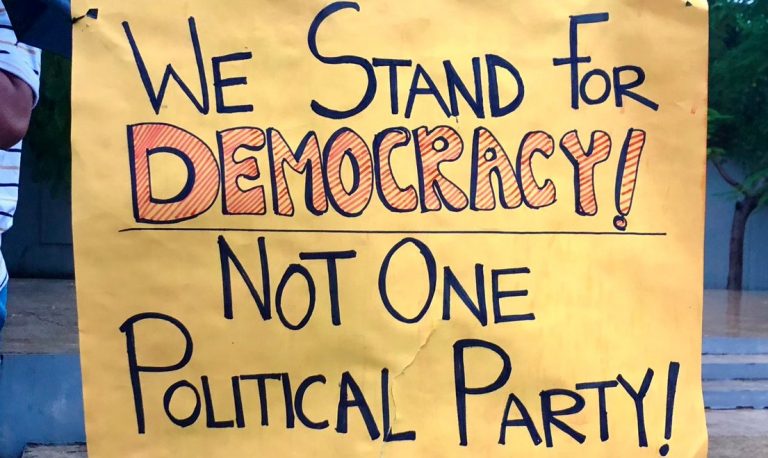 We Stand For
DEMOCRACY!
Not One
Political Party!